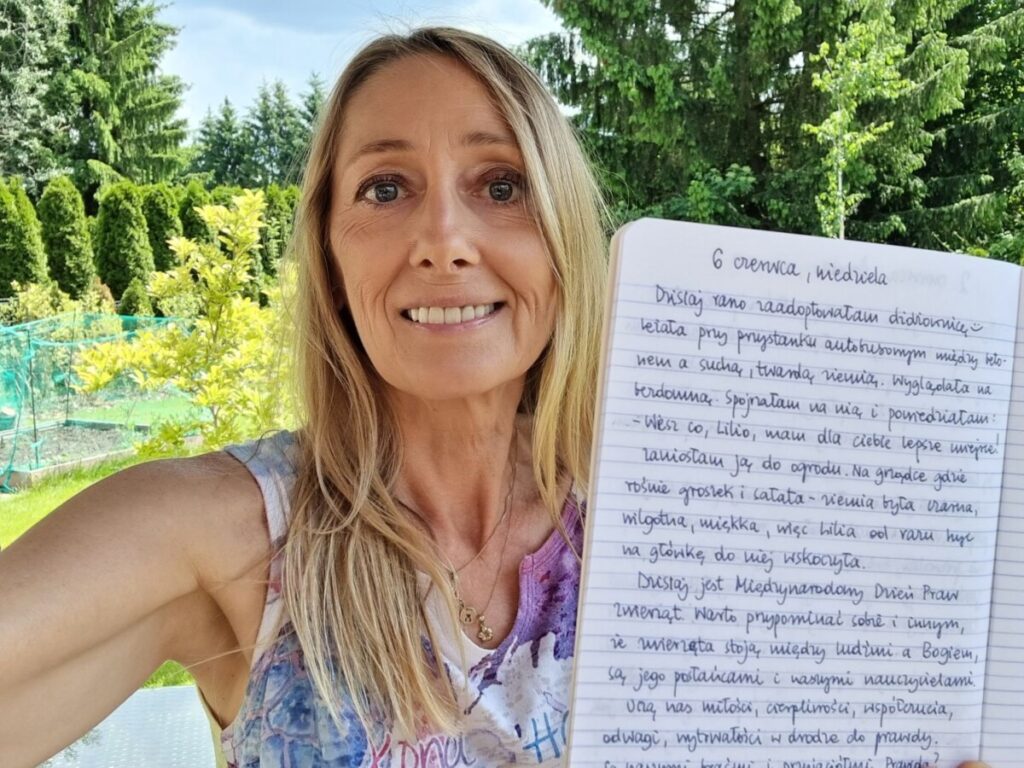 6 czerwca, niedziela
Dzisiaj rano zaadoptowałam dżdżownicę
Leżała przy przystanku autobusowym między beto-
nem a suchą, twardą ziemią. Wyglądała na
bezdomną. Spojrzałam na nią i powiedziałam:
- Wiesz co, Lilio, mam dla ciebie lepsze miejsce!
Zaniosłam ją do ogrodu. Na grządce gdzie
rośnie groszek i sałata - ziemia była czarna,
wilgotna, miękka, więc Lilia od razu hyc
na główkę do niej wskoczyła.
Dzisiaj jest Międzynarodowy Dzień Praw
Zwierząt. Warto przypominać sobie i innym,
że zwierzęta stoją między ludźmi a Bogiem,
są jego posłańcami i naszymi nauczycielami.
Uczą nas miłości, cierpliwości, współczucia,
odwagi, wytrwałości w drodze do prawdy.
Są naszymi braćmi i przyjaciółmi. Prawda?
Kona